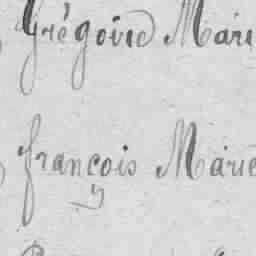 Grégoire Marie
françois Marie